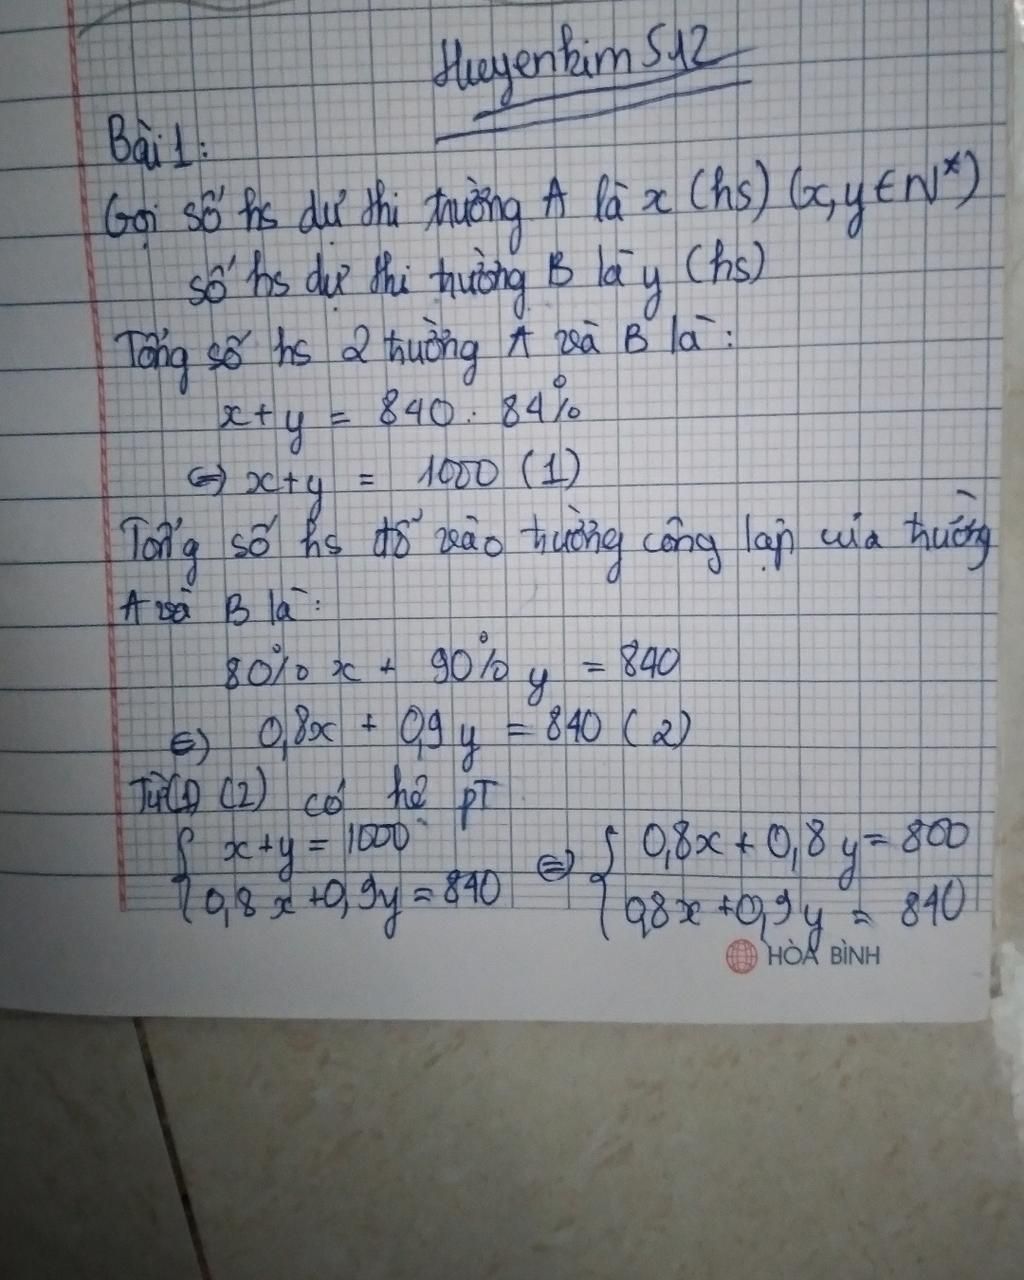 Huyenkim512
Bài 1:
Gọi số hs dự thi trường A là x (hs) (x,y ∈ N*)
số hs dự thi trường B là y (hs)
Tổng số hs 2 trường A và B là:
x+y = 840 : 84%
⇔ x+y = 1000 (1)
Tổng số hs đỗ vào trường công lập của trường
A và B là:
80% x + 90% y = 840
⇔ 0,8x + 0,9y = 840 (2)
Từ (1) (2) có hệ pT
{ x+y = 1000 ⇔ { 0,8x + 0,8y = 800
0,8x + 0,9y = 840 0,8x + 0,9y = 840
HÒA BÌNH